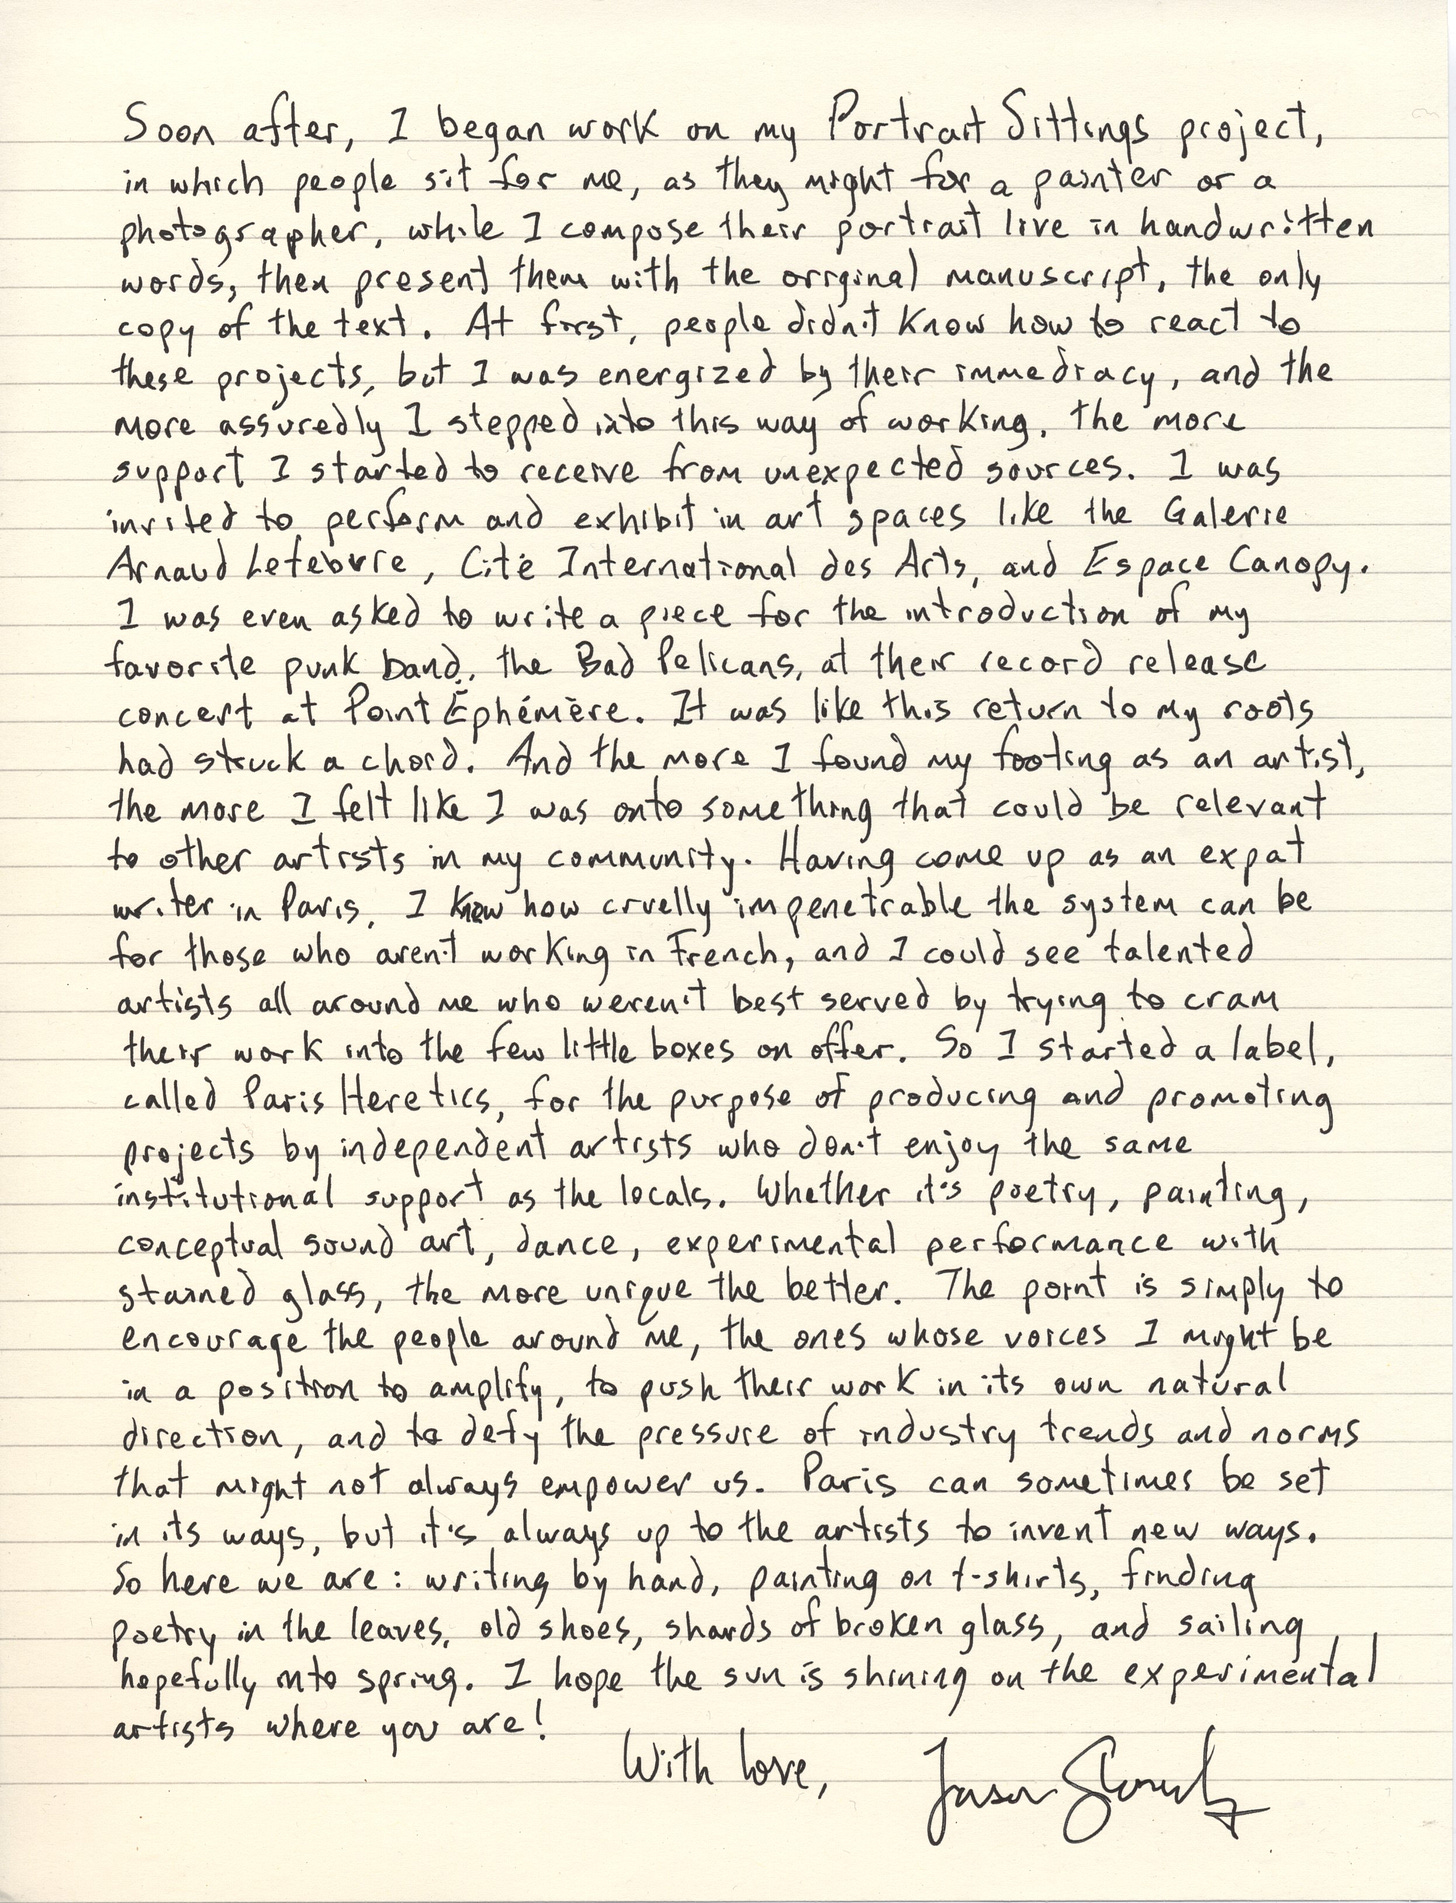 Soon after, I began work on my Portrait Sittings project,
in which people sit for me, as they might for a painter or a
photographer, while I compose their portrait live in handwritten
words, then present them with the original manuscript, the only
copy of the text. At first, people didn't know how to react to
these projects, but I was energized by their immediacy, and the
more assuredly I stepped into this way of working, the more
support I started to receive from unexpected sources. I was
invited to perform and exhibit in art spaces like the Galerie
Arnaud Lefebvre, Cité International des Arts, and Espace Canopy.
I was even asked to write a piece for the introduction of my
favorite punk band, the Bad Pelicans, at their record release
concert at Point Éphémère. It was like this return to my roots
had struck a chord. And the more I found my footing as an artist,
the more I felt like I was onto something that could be relevant
to other artists in my community. Having come up as an expat
writer in Paris, I know how cruelly impenetrable the system can be
for those who aren't working in French, and I could see talented
artists all around me who weren't best served by trying to cram
their work into the few little boxes on offer. So I started a label,
called Paris Heretics, for the purpose of producing and promoting
projects by independent artists who don't enjoy the same
institutional support as the locals. Whether it's poetry, painting,
conceptual sound art, dance, experimental performance with
stained glass, the more unique the better. The point is simply to
encourage the people around me, the ones whose voices I might be
in a position to amplify, to push their work in its own natural
direction, and to defy the pressure of industry trends and norms
that might not always empower us. Paris can sometimes be set
in its ways, but it's always up to the artists to invent new ways.
So here we are: writing by hand, painting on t-shirts, finding
poetry in the leaves, old shoes, shards of broken glass, and sailing
hopefully into spring. I hope the sun is shining on the experimental
artists where you are!
With love, Jason